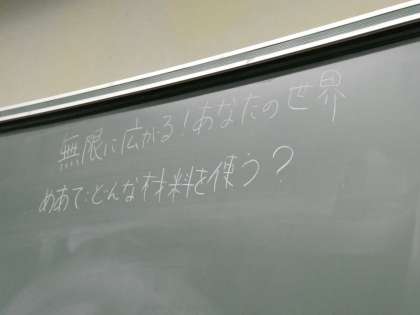 無限に広がる!あなたの世界
めあて:どんな材料を使う?